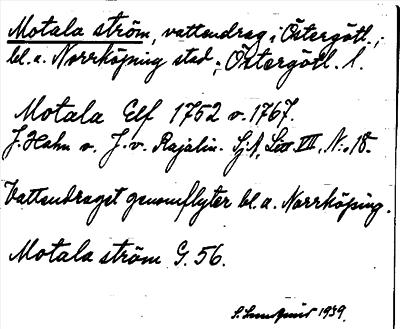 Motala ström, vattendrag i Östergötl.,
bl.a. Norrköping stad, Östergötl. l.
Motala Elf 1752 o. 1767.
J. Hahn o. J. v. Rajalin. Sj.A, Litt VII, N:o 18.
Vattendraget genomflyter bl.a. Norrköping.
Motala ström G. 56.
S. 1939.